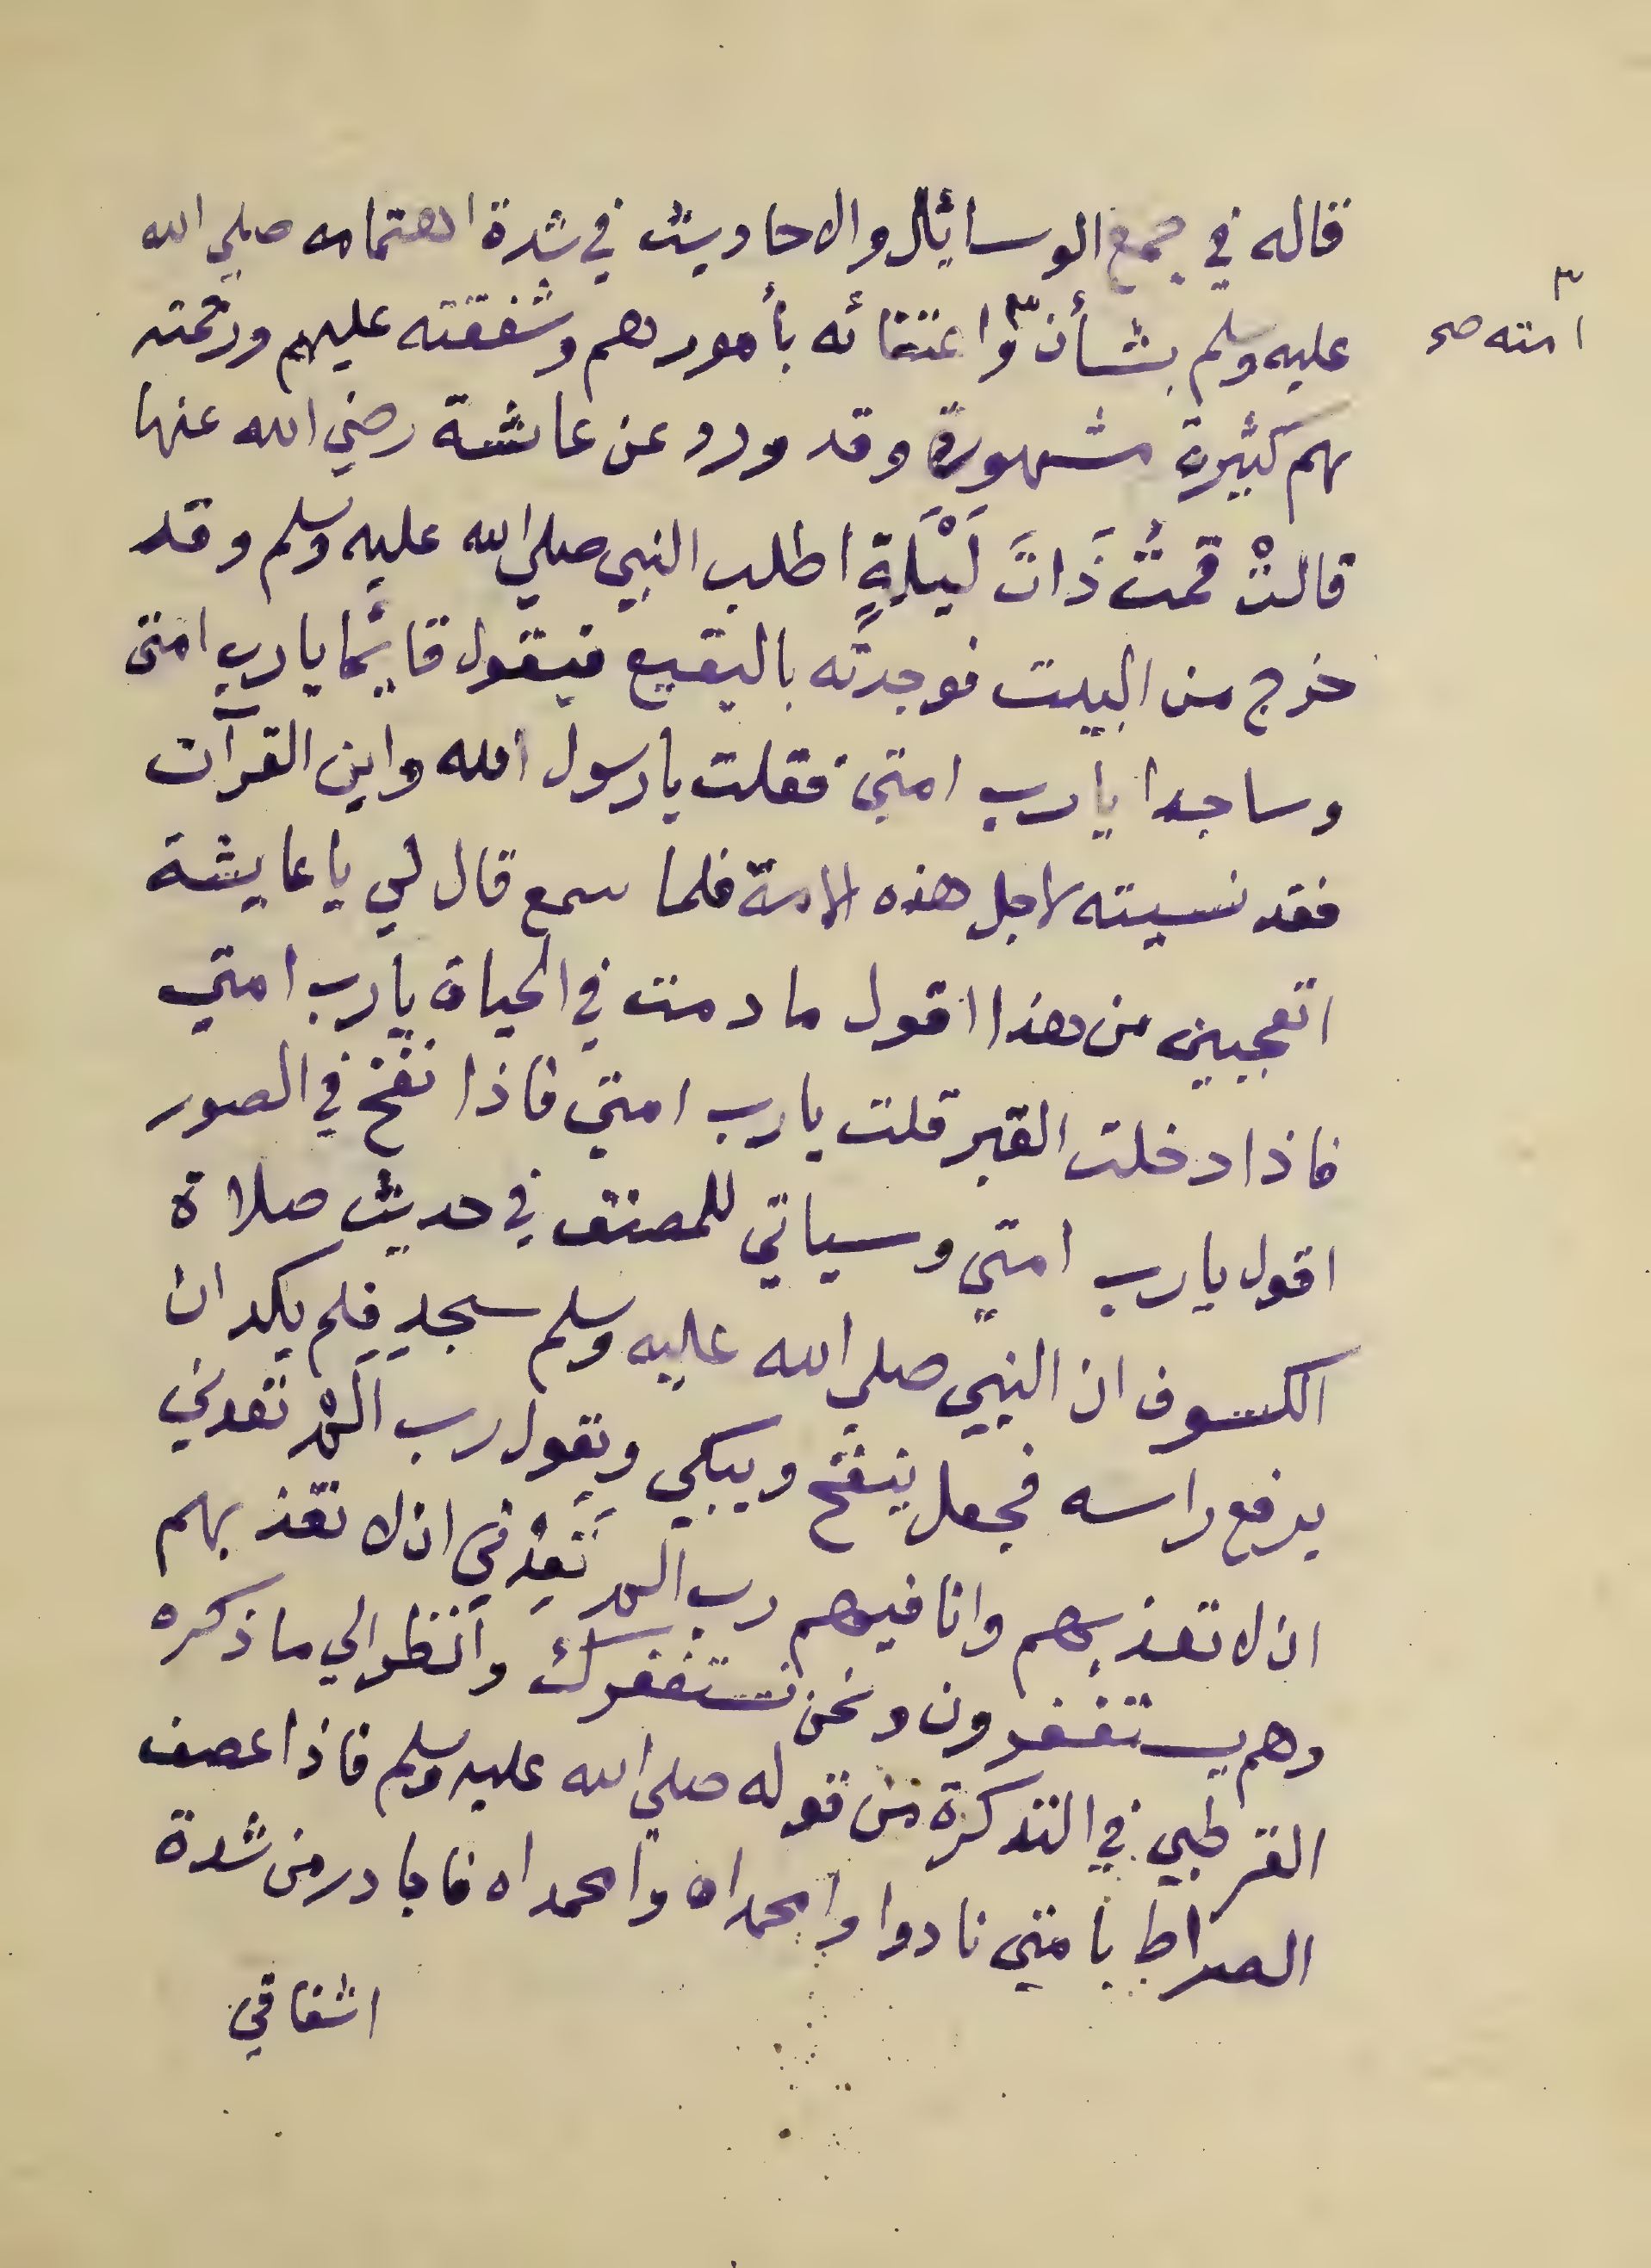 قاله في جمع الوسائل والاحاديث في شدة اهتمامه صلي الله
عليه وسلم بشأن ٣ واعتنائه بأمورهم وشفقته عليهم ورحمته
٣
امته صح
بهم كثيرة مشهورة وقد ورد عن عائشة رضي الله عنها
قالتْ قمتُ ذَاتَ لَيْلَةٍ اطلب النبي صلي الله عليه وسلم وقد
خرج من البيت فوجدته بالبقيع فيقول قائما يا رب امتي
وساجدا يا رب امتي فقلت يا رسول الله واين القرآن
فقد نسيته لاجل هذه الامة فلما سمع قال لي يا عايشة
اتعجبين من هذا اقول ما دمت في الحياة يا رب امتي
فاذا دخلت القبر قلت يا رب امتي فاذا نفخ في الصور
اقول يا رب امتي وسياتي للمصنف في حديث صلاة
الكسوف ان النبي صلي الله عليه وسلم سجد فلم يكد ان
يرفع راسه فجعل ينفخ ويبكي ويقول رب ألم تعدني
ان لا تعذبهم وانا فيهم رب ألم تَعِدْني ان لا تعذبهم
وهم يستغفرون ونحن نستغفرك وانظر الي ما ذكره
القرطبي في التذكرة من قوله صلي الله عليه وسلم فاذا عصف
الصراط بامتي نادوا وامحمداه وامحمداه فابادر من شدة
اشفاقي